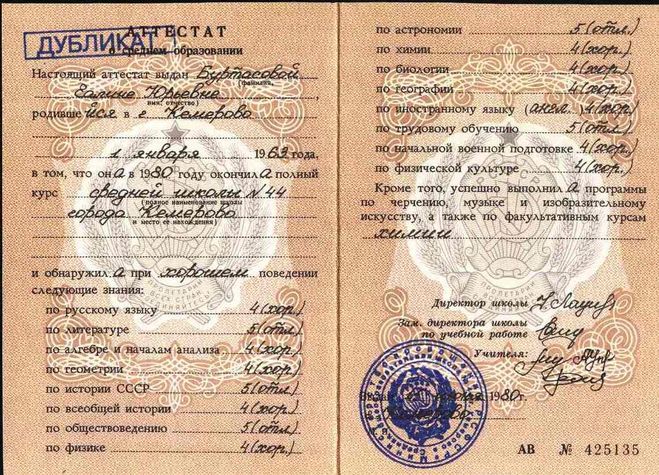 АТТЕСТАТ
ДУБЛИКАТ
о среднем образовании
Настоящий аттестат выдан Буртасовой
(фамилия,
Галине Юрьевне
имя, отчество)
родившейся в г. Кемерово
1 января 1963 года,
в том, что она в 1980 году окончила полный
курс средней школы № 44
(полное наименование школы
города Кемерово
и место ее нахождения)
и обнаружила при хорошем поведении
следующие знания:
по русскому языку 4(хор.)
по литературе 5(отл.)
по алгебре и началам анализа 4(хор.)
по геометрии 4(хор.)
по истории СССР 5(отл.)
по всеобщей истории 4(хор.)
по обществоведению 5(отл.)
по физике 4(хор.)
по астрономии 5(отл.)
по химии 4(хор.)
по биологии 4(хор.)
по географии 4(хор.)
по иностранному языку (англ.) 4(хор.)
по трудовому обучению 5(отл.)
по начальной военной подготовке 4(хор.)
по физической культуре 4(хор.)
Кроме того, успешно выполнила программы
по черчению, музыке и изобразительному
искусству, а также по факультативным курсам
химии
Директор школы
Зам. директора школы
по учебной работе
Учителя:
1980 г.
АВ № 425135